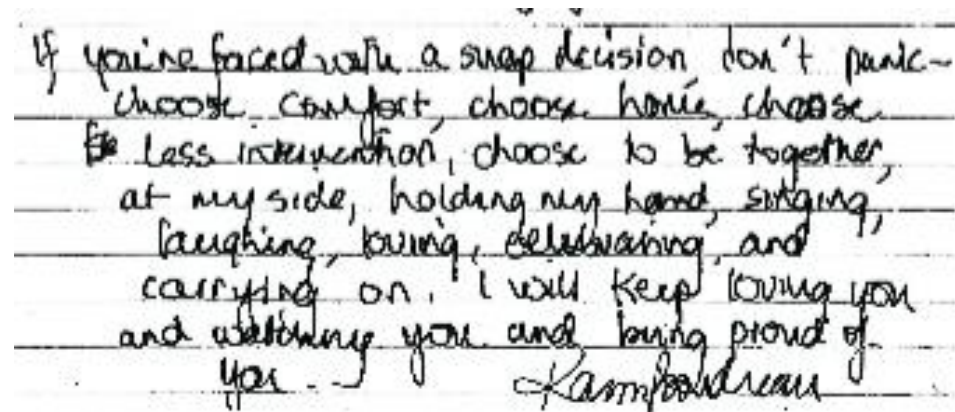 If you're faced with a snap decision don't panic-
choose comfort, choose home, choose
less intervention, choose to be together,
at my side, holding my hand, singing,
laughing, loving, celebrating, and
carrying on. I will keep loving you
and watching you and being proud of
you.